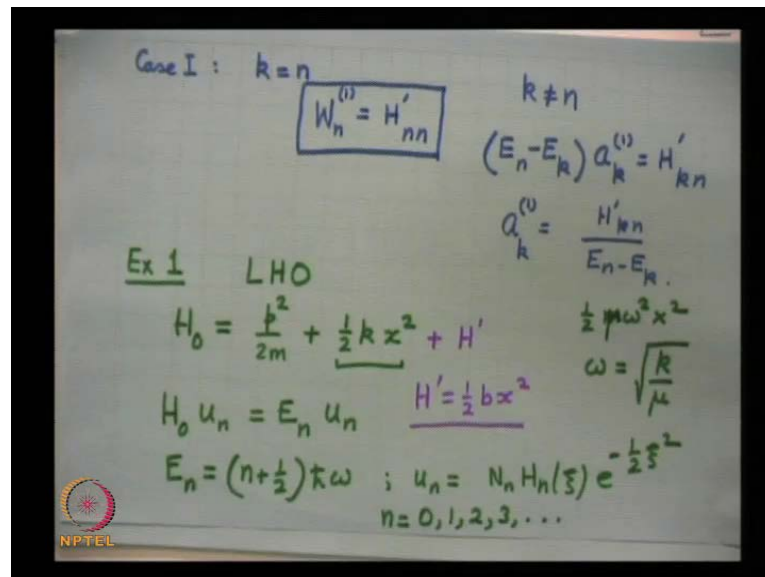 Case I : k = n
W_n^(1) = H'_nn
k ≠ n
(E_n - E_k) a_k^(1) = H'_kn
a_k^(1) = H'_kn / (E_n - E_k).
Ex 1 LHO
H_0 = p²/2m + ½ k x² + H'
½ μω² x²
ω = √(k/μ)
H_0 u_n = E_n u_n H' = ½ b x²
E_n = (n+½) ħω ; u_n = N_n H_n(ξ) e^(-½ ξ²)
n = 0, 1, 2, 3, ...
NPTEL